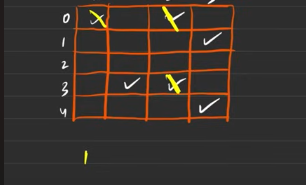 0
1
2
3
4
1